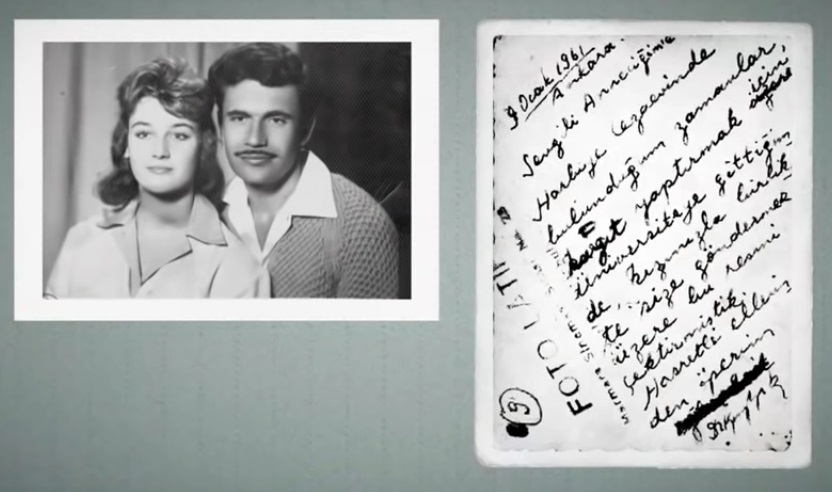 9 Ocak 1961
Ankara
Sevgili Anneciğime
Harbiye Cezaevinde
bulunduğum zamanlar,
kağıt yaptırmak için
üniversiteye gittiğim
de, kızınızla birlik
te size göndermek
üzere bu resmi
çektirmiştik.
Hasretle elleriniz
den öperim
FOTO LATİF
Marmara Sineması
9